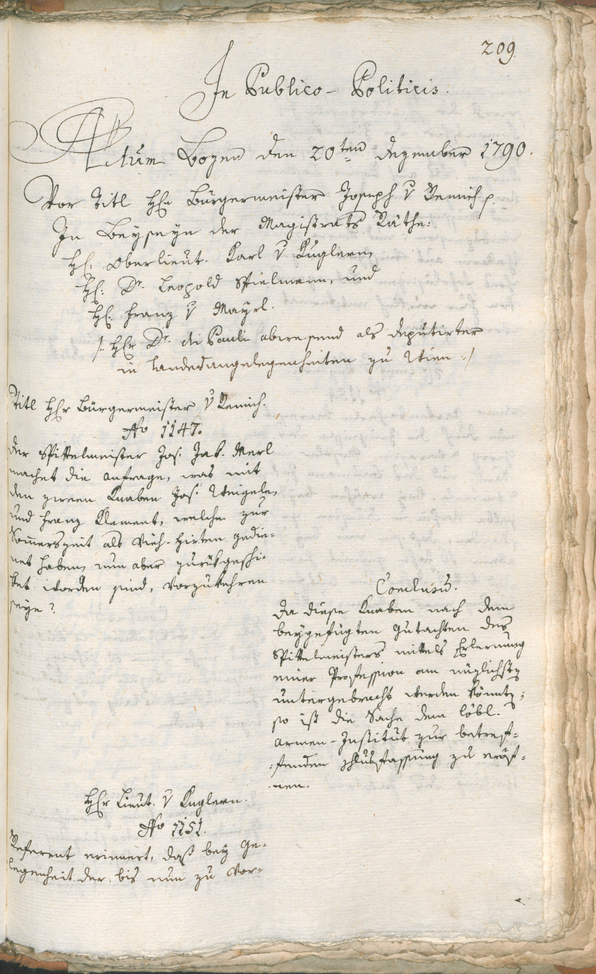 209
In Publico-Politicis.
Actum Bozen den 20ten Dezember 1790.
Vor Titl Hhr Bürgermeister Joseph v Remich p.
In Beyseyn der Magistrats Räthe:
Hh: Oberlieut. Karl v Kuglern,
Hh: Dr. Leopold Spielmann, und
Hh: Franz v Mayrl.
/: Hhr Dr. de Pauli abwesend als deputirter
in landesangelegenheiten zu Wien :/
Titl Hhr Bürgermeister v Remich.
No 1147.
Der Spittelmeister Jos: Jak: Merl
machet die anfrage, was mit
den zween Knaben Jos:
und Franz Clement, welche zur
Sommerszeit als Vieh-Hirten gedie-
net haben, nun aber zurükgeschi-
ket worden sind, vorzukehren
seye?
Conclusum.
Da diese Knaben nach dem
beygefügten Gutachten des
Spittelmeisters mittels Erlernung
einer Profession am nüzlichsten
untergebracht werden könnten;
so ist die Sache dem löbl.
Armen-Institut zur betref-
fenden Schlußfassung zu eröf-
nen.
Hhr Lieut. v Kuglern.
No 1151.
Referent erinnert, daß bey Ge-
legenheit der bis nun zu vor-